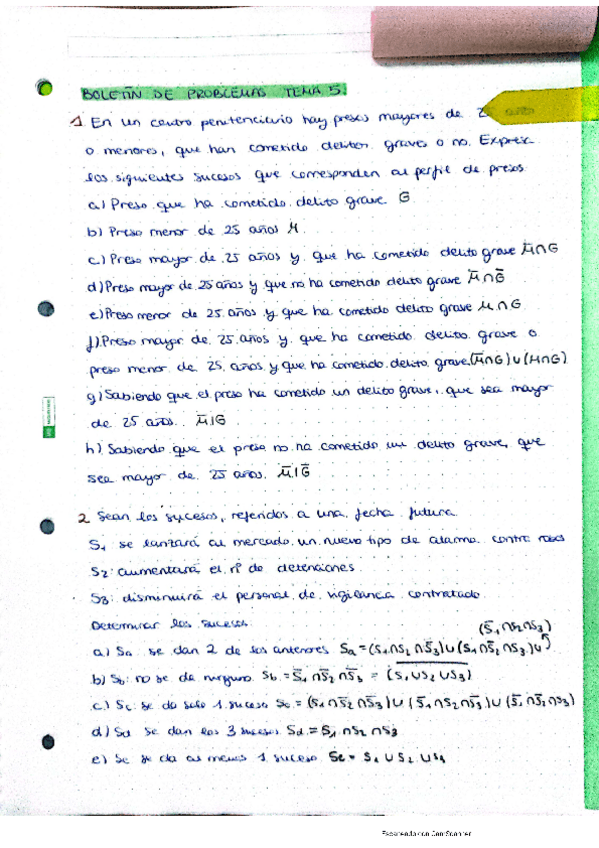 BOLETÍN DE PROBLEMAS TEMA 5.
1 En un centro penitenciario hay presos mayores de 25 años
o menores, que han cometido delitos graves o no. Expresa
los siguientes sucesos que corresponden al perfil de presos:
a) Preso que ha cometido delito grave G
b) Preso menor de 25 años M
c) Preso mayor de 25 años y que ha cometido delito grave M̅∩G
d) Preso mayor de 25 años y que no ha cometido delito grave M̅∩G̅
e) Preso menor de 25 años y que ha cometido delito grave M∩G
f) Preso mayor de 25 años y que ha cometido delito grave o
preso menor de 25 años y que ha cometido delito grave (M̅∩G)∪(M∩G)
g) Sabiendo que el preso ha cometido un delito grave, que sea mayor
de 25 años. M̅|G
h) Sabiendo que el preso no ha cometido un delito grave, que
sea mayor de 25 años. M̅|G̅
2 Sean los sucesos, referidos a una fecha futura
S₁ se lanzará al mercado un nuevo tipo de alarma contra robos
S₂: aumentará el nº de detenciones
S₃: disminuirá el personal de vigilancia contratado
Determinar los sucesos:
(S̅₁∩S₂∩S₃)
a) Sa se dan 2 de los anteriores Sa=(S₁∩S₂∩S̅₃)∪(S₁∩S̅₂∩S₃)∪
b) Sb: no se da ninguno Sb = S̅₁∩S̅₂∩S̅₃ = (S₁∪S₂∪S₃)
c) Sc: se da solo 1 suceso Sc=(S₁∩S̅₂∩S̅₃)∪(S̅₁∩S₂∩S̅₃)∪(S̅₁∩S̅₂∩S₃)
d) Sd se dan los 3 sucesos Sd=S₁∩S₂∩S₃
e) Se se da al menos 1 suceso Se= S₁∪S₂∪S₃
Escaneado con CamScanner